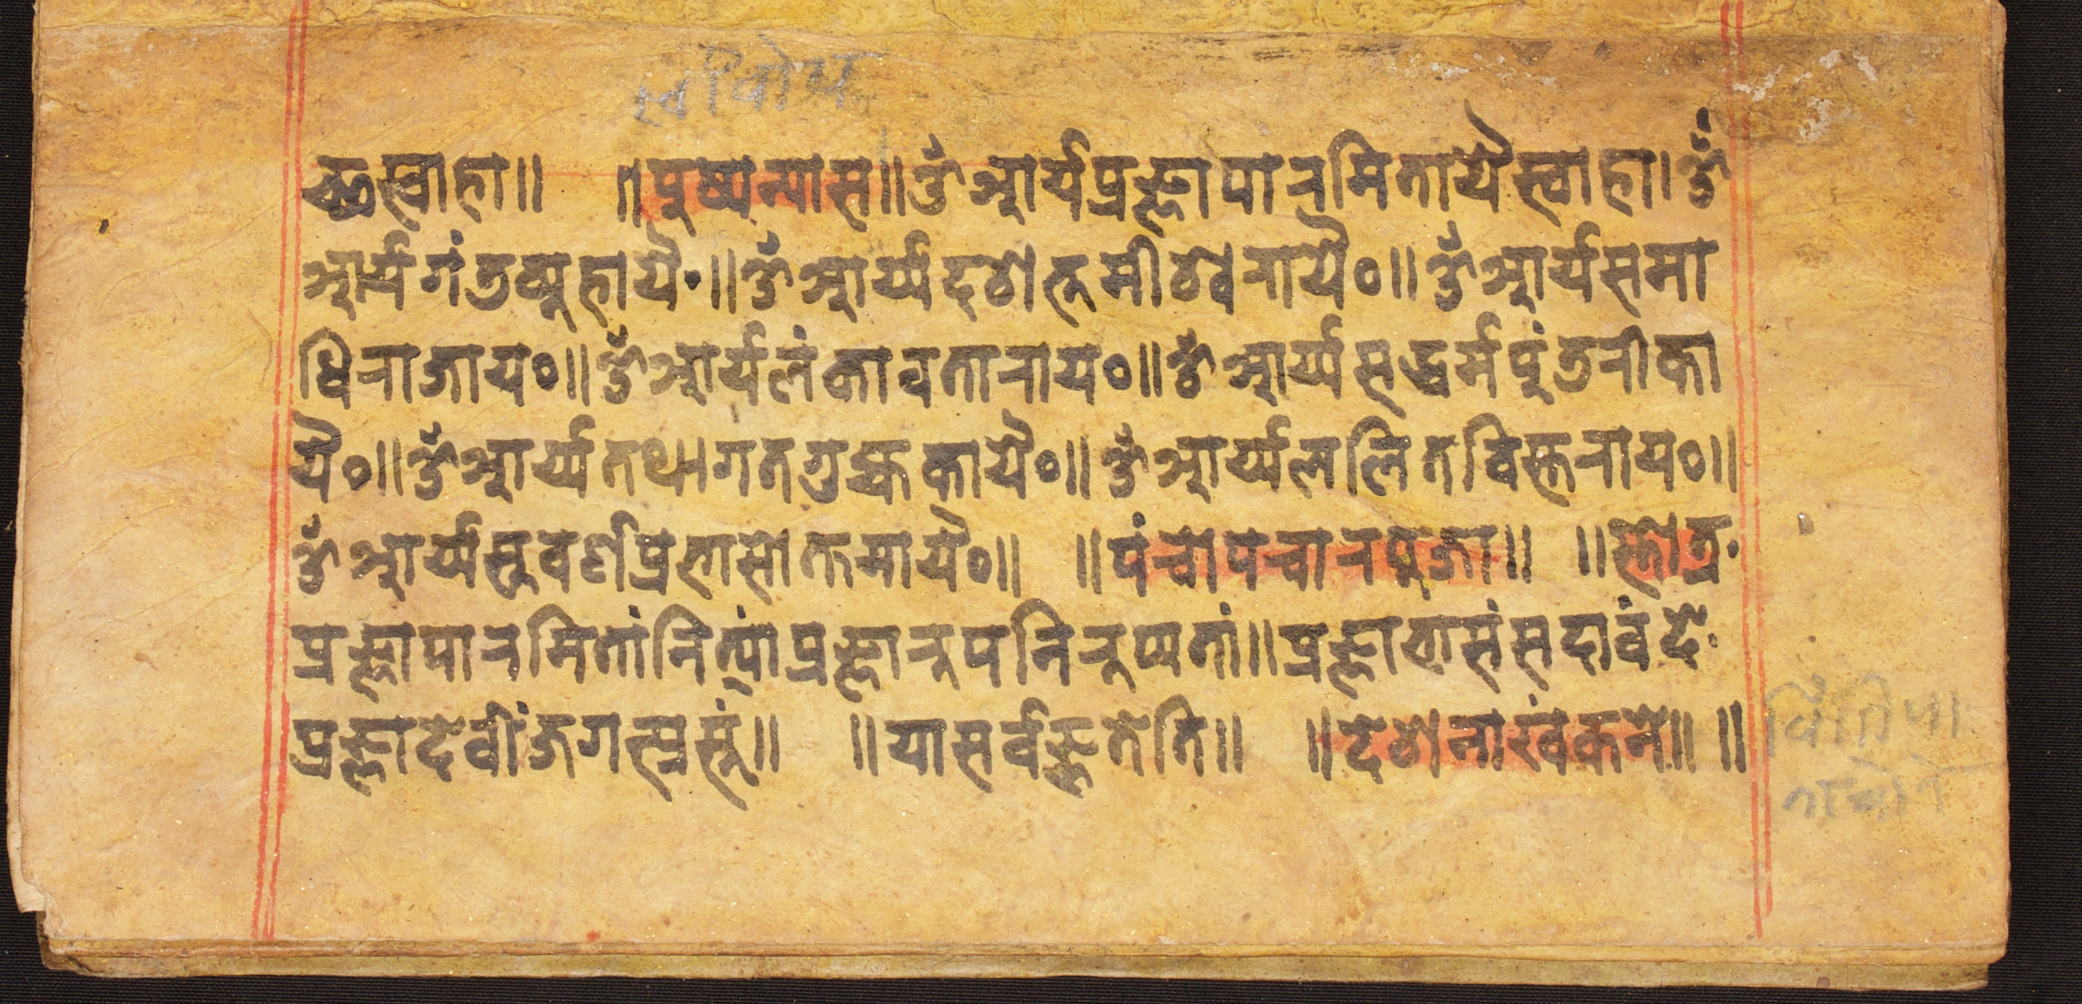 च्छस्वाहा॥ ॥पुष्पन्यास॥ॐआर्यप्रज्ञापारमितायैस्वाहा।ॐ
आर्यगंतव्यूहायै॰॥ॐआर्य्यदशभूमीश्वरायै॰॥ॐआर्यसमा
धिराजाय॰॥ॐआर्यलंकावताराय॰॥ॐआर्य्यसद्धर्मपुंतरीका
यै॰॥ॐआर्य्यतथागतगुह्यकायै॰॥ॐआर्य्यललितविस्तराय॰॥
ॐआर्य्यसुवर्णप्रभासोत्तमायै॰॥ ॥पंचोपचारपूजा॥ ॥स्तोत्र॰
प्रज्ञापारमितांनित्यांप्रज्ञारुपनिरुप्यतां॥प्रज्ञाभासंसदावंदे॰
प्रज्ञादेवींजगत्प्रसूं॥ ॥यासर्वज्ञतेति॥ ॥देशनाखंकने॥ ॥